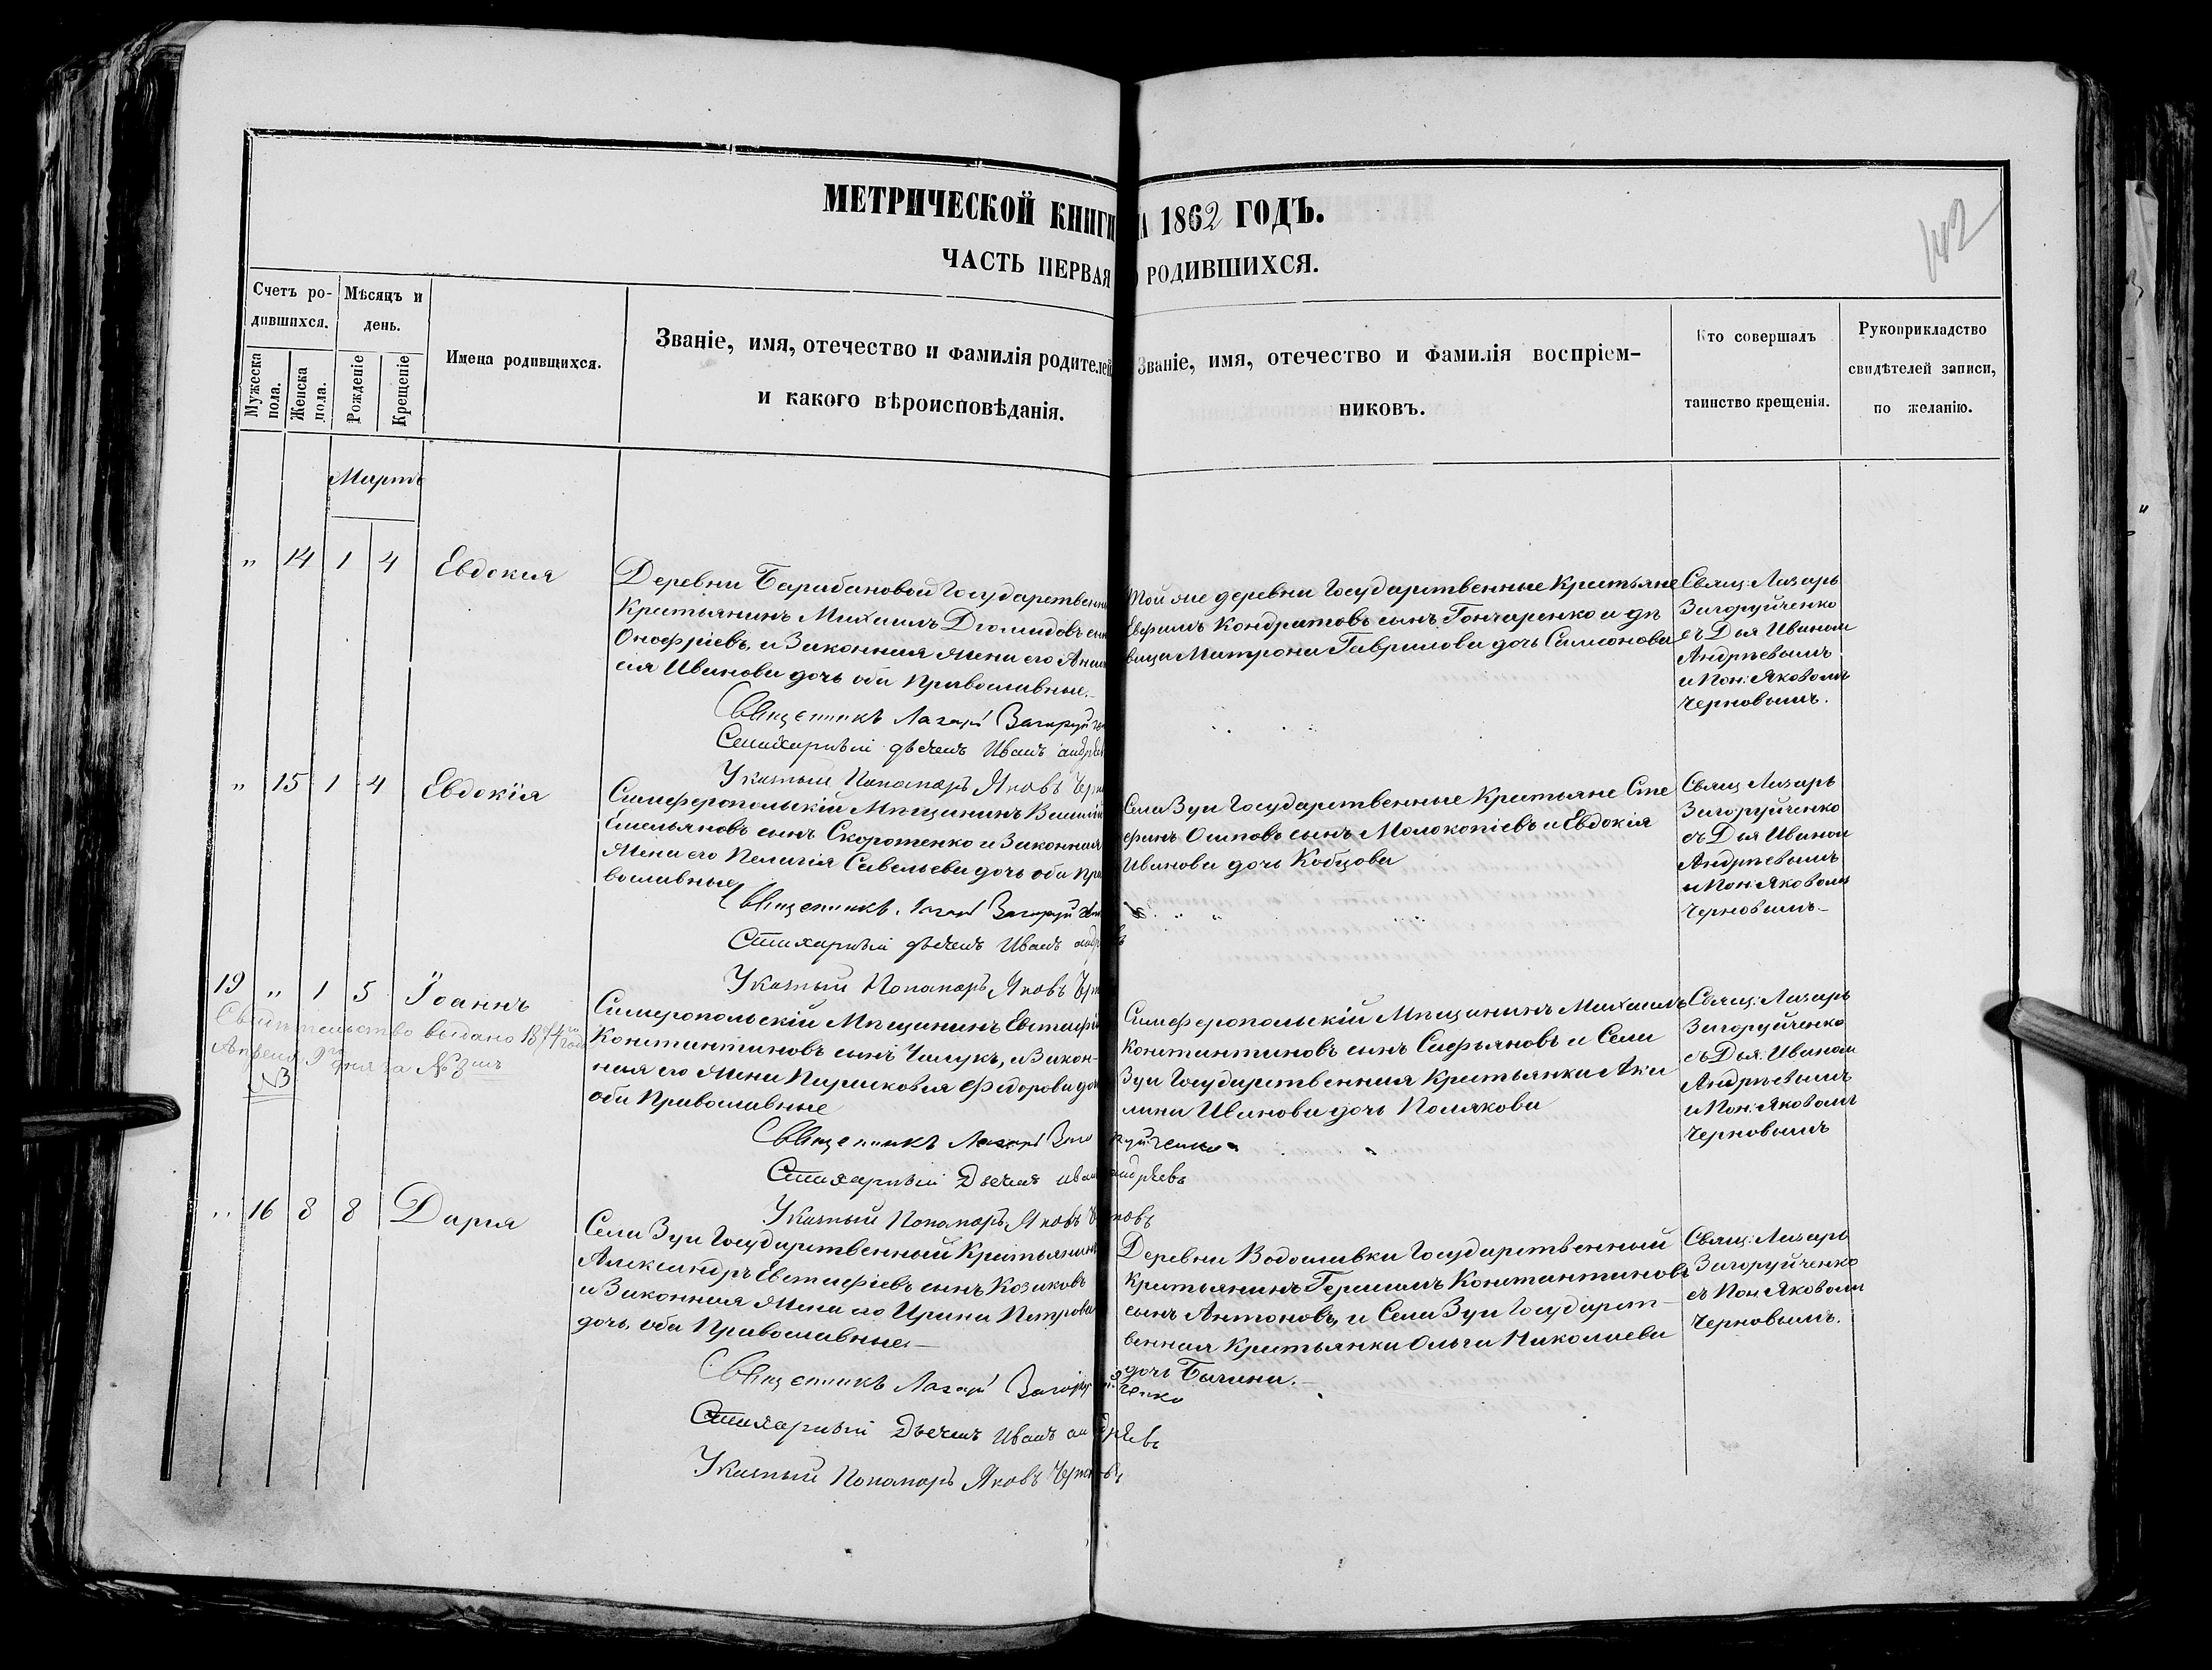 МЕТРИЧЕСКОЙ КНИГИ НА 1862 ГОДЪ.
142
ЧАСТЬ ПЕРВАЯ О РОДИВШИХСЯ.
Счетъ ро-
дившихся.
Мѣсяцъ и
день.
Мужеска
пола.
Женска
пола.
Рожденіе
Крещеніе
Имена родившихся.
Званіе, имя, отечество и фамилія родителей
и какого вѣроисповѣданія.
Званіе, имя, отечество и фамилія воспріем-
никовъ.
Кто совершалъ
таинство крещенія.
Рукоприкладство
свидѣтелей записи,
по желанію.
Мартъ
" 14 1 4 Евдокия
Деревни Барабановой Государственный
Крестьянинъ Михаилъ Дiомидовъ сынъ
Онофріевъ, и Законная Жена его Анас
сія Иванова дочь оба Православные.
Священникъ Лазарь Загоруй
Стихарный дьячекъ Иванъ андре
Указный Пономарь Яковъ Чер
Той же деревни Государственные Крестьяне
Ефимъ Кондратовъ сынъ Гончаренко и дѣ
вица Матрона Гаврилова дочь Самсонова
Свящ: Лазарь
Загоруйченко
съ Дья Иваном
Андрѣевымъ
и Пон: Яковомъ
Черновымъ.
" 15 1 4 Евдокія
Симферопольскій Мѣщанинъ Василій
Емельяновъ сынъ Скоротенко и Законная
Жена его Пелагія Савельева дочь оба Пра
вославные
Священникъ Лазарь Загоруй
Стихарный дьячекъ Иванъ андр въ
Указный Пономарь Яковъ Чер
Села Зуи Государственные Крестьяне Сте
фанъ Осиповъ сынъ Молокопіевъ и Евдокія
Иванова дочь Кобцова
Свящ Лазарь
Загоруйченко
съ Дья Иваном
Андрѣевымъ
и Пон: Яковомъ
Черновымъ
19 " 1 5 Іоаннъ
Свидѣтельство выдано 1874го года
Апреля 9го дня за №
№3
Симферопольскій Мѣщанинъ Евстафій
Константиновъ сынъ Чалукъ, и Закон-
ная его Жена Парасковія Федорова дочь
оба Православные
Священникъ Лазарь Загоруйченко
Стихарный Дьячекъ иванъ андрѣевъ
Указный Пономарь Яковъ Черновъ
Симферопольскій Мѣщанинъ Михаилъ
Константиновъ сынъ Сафьяновъ и Села
Зуи Государственная Крестьянка Аки
лина Иванова дочь Полякова
Свящ: Лазарь
Загоруйченко
съ Дья: Иваном
Андрѣевымъ
и Пон: Яковомъ
Черновымъ
" 16 8 8 Дарія
Села Зуи Государственный Крестьянинъ
Александръ Евстафіевъ сынъ Козиковъ
и Законная Жена его Ирина Петрова
дочь, оба Православные.
Священникъ Лазарь Загоруйченко
Стихарный Дьячекъ Иванъ андрѣевъ
Указный Пономарь Яковъ Черновъ
Деревни Водославки Государственный
Крестьянинъ Герасимъ Константиновъ
сынъ Антоновъ, и Села Зуи Государст-
венная Крестьянка Ольга Николаева
дочь Бычина.
Свящ: Лазарь
Загоруйченко
съ Пон Яковомъ
Черновымъ.